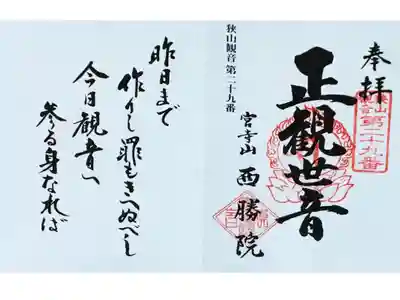 奉拝
狭山第二十九番
正観世音
狭山観音第二十九番
宮寺山 西勝院
昨日まで
作りし罪もきへぬべし
今日観音へ
参る身なれば